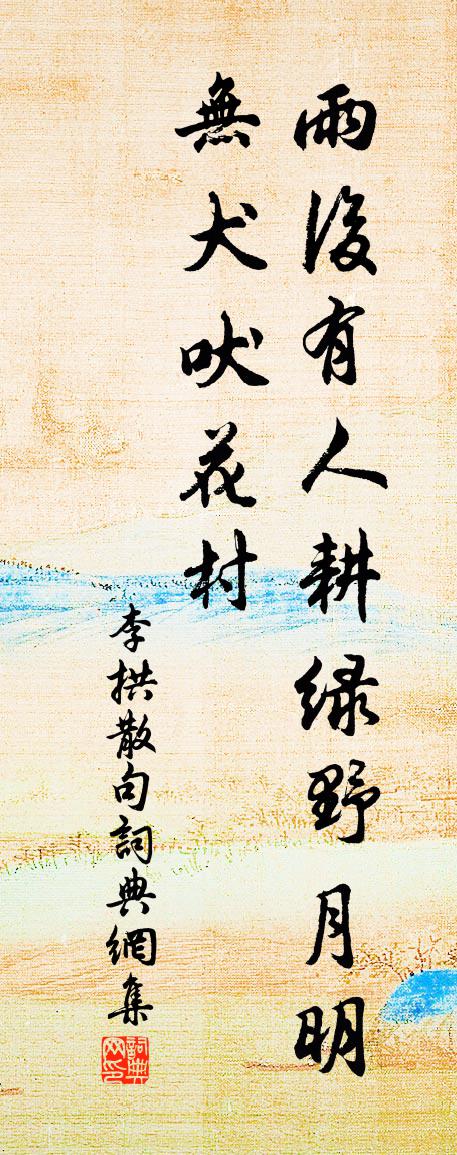 雨後有人耕綠野月明
無犬吠花村
李拱散句詞典網集
詞典网印